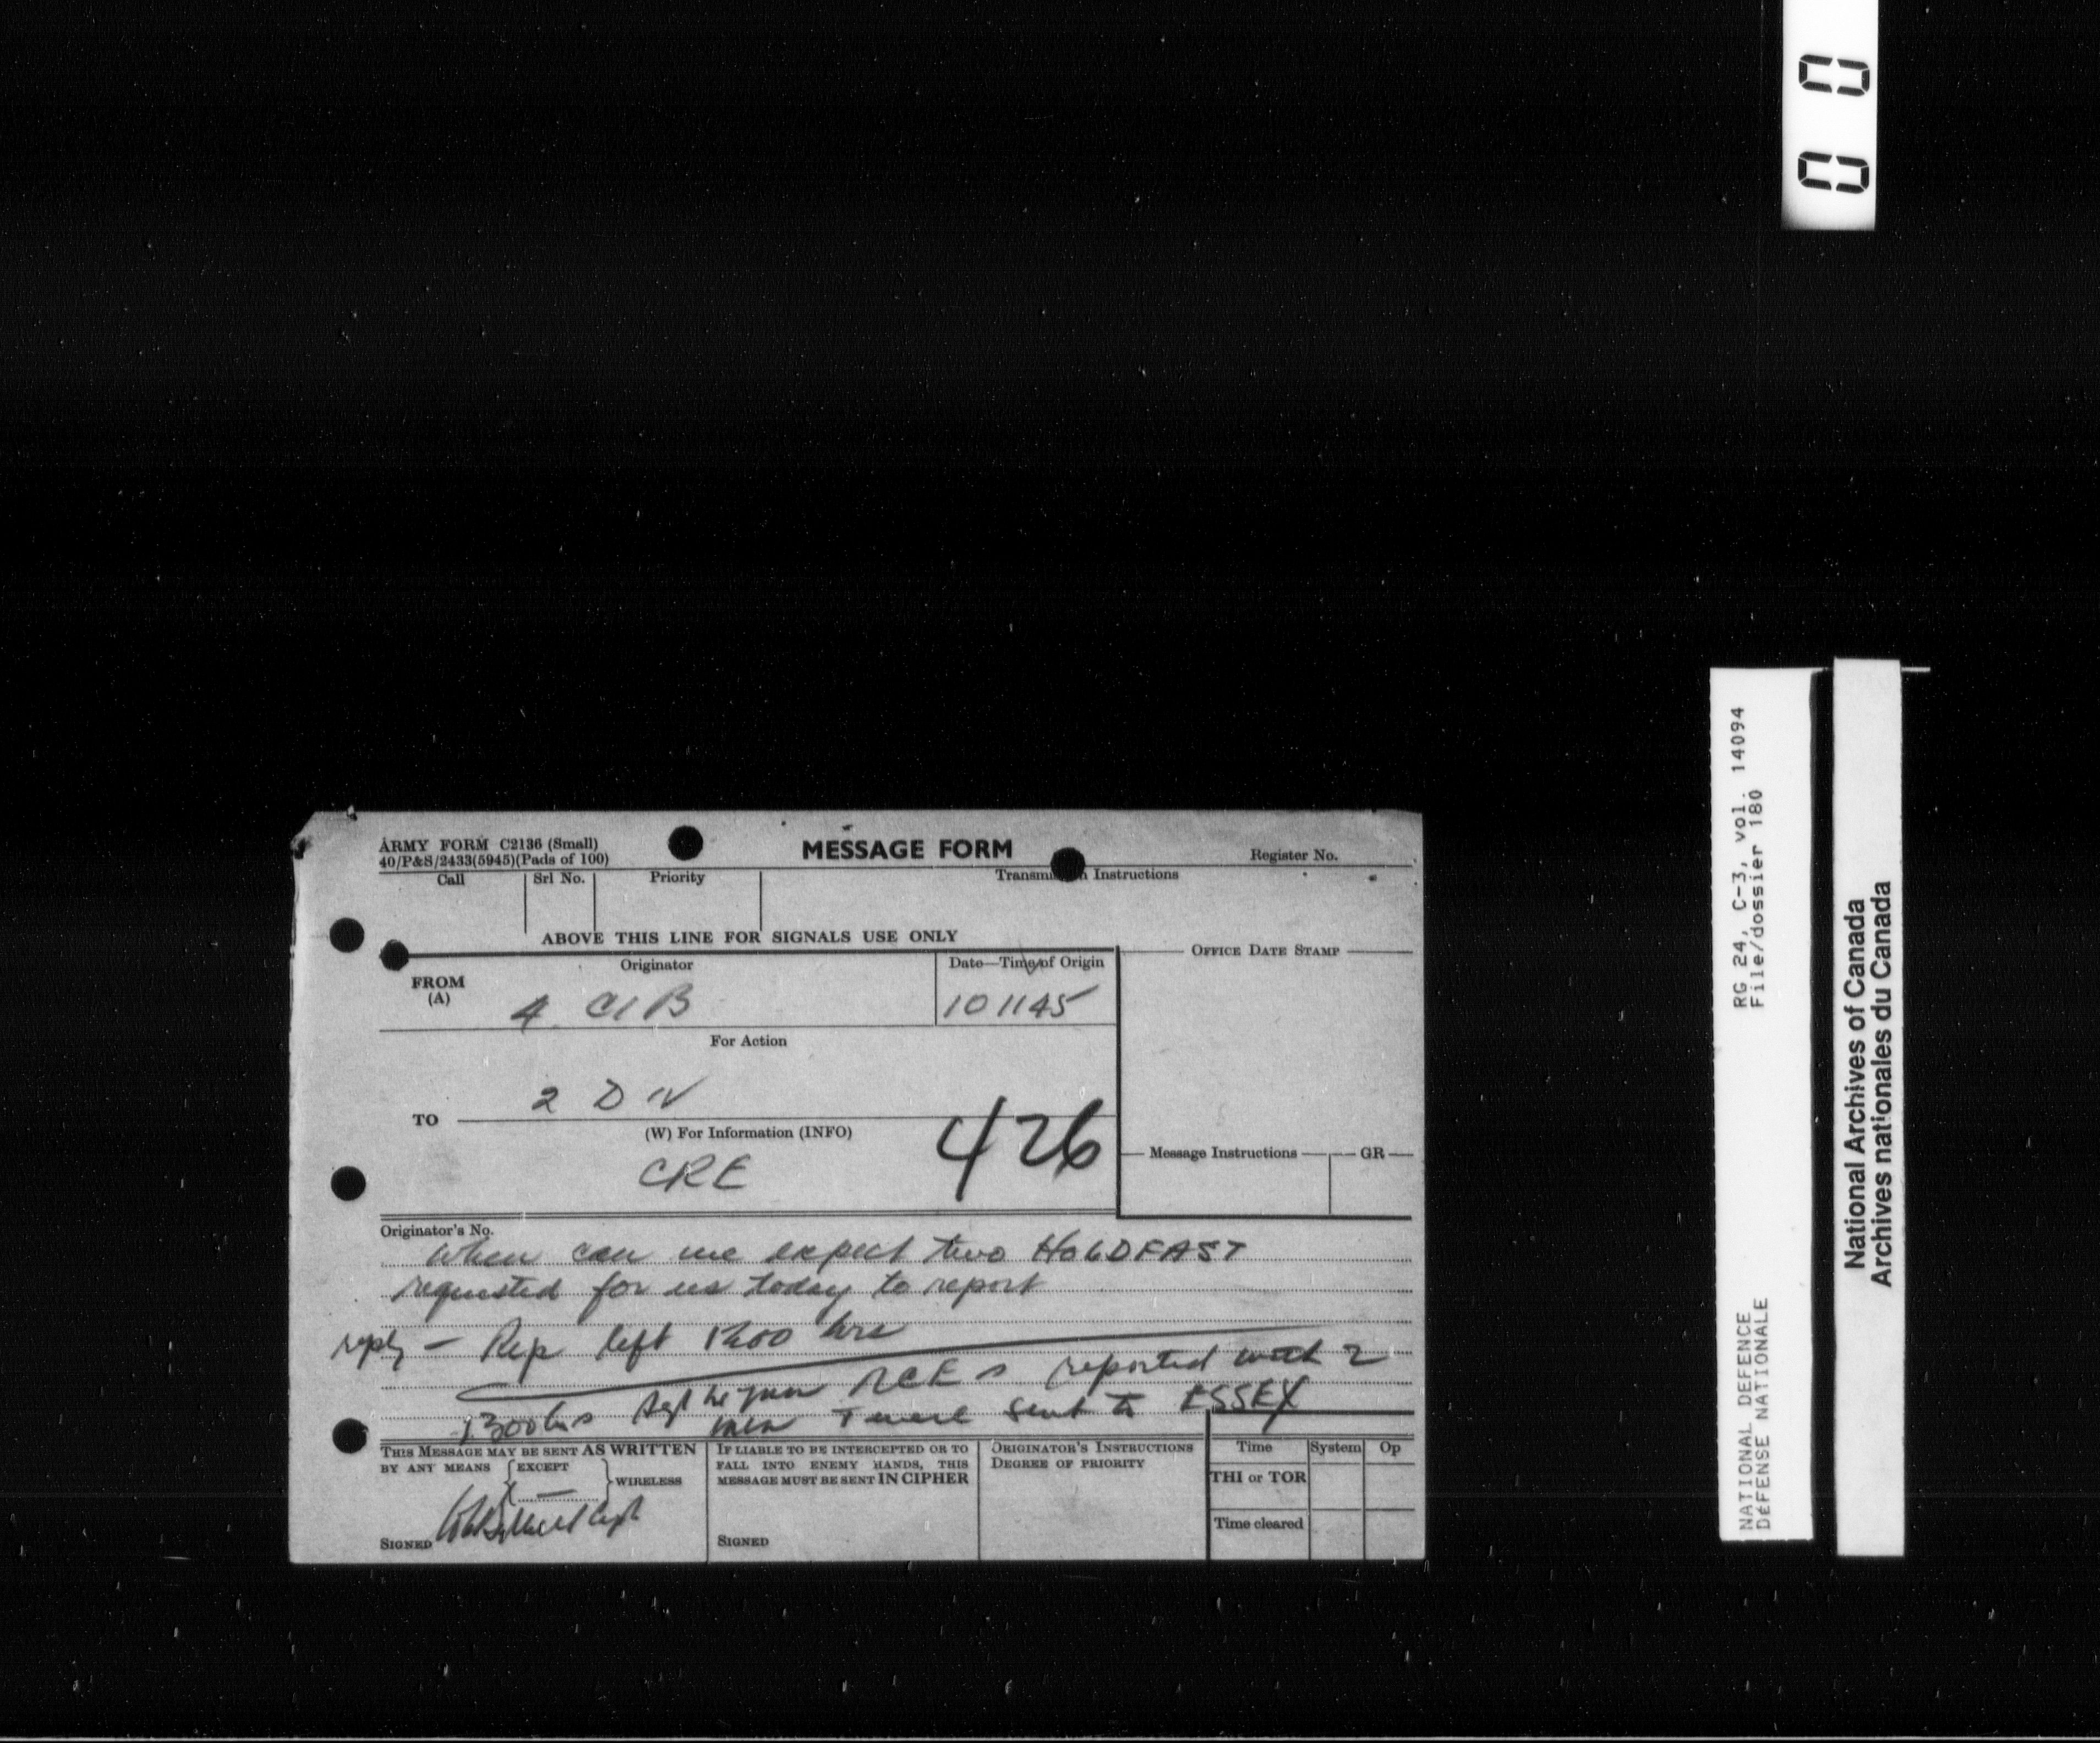 0 0
ARMY FORM C2136 (Small)
40/P&S/2433(5945)(Pads of 100)
MESSAGE FORM
Register No.
Call
Srl No.
Priority
Transmi n Instructions
ABOVE THIS LINE FOR SIGNALS USE ONLY
FROM
(A)
Originator
4 CIB
Date—Time of Origin
101145
OFFICE DATE STAMP
For Action
2 DIV
TO
(W) For Information (INFO)
CRE
426
Message Instructions
GR
Originator's No.
When can we expect two HOLDFAST
requested for us today to report
reply – Rep left 1200 hrs
1300 hrs Sgt RCEs reported with 2
men & were sent to ESSEX
THIS MESSAGE MAY BE SENT AS WRITTEN
BY ANY MEANS { EXCEPT } WIRELESS
SIGNED Capt
IF LIABLE TO BE INTERCEPTED OR TO
FALL INTO ENEMY HANDS, THIS
MESSAGE MUST BE SENT IN CIPHER
SIGNED
ORIGINATOR'S INSTRUCTIONS
DEGREE OF PRIORITY
Time
System
Op
THI or TOR
Time cleared
RG 24, C-3, vol. 14094
File/dossier 180
NATIONAL DEFENCE
DÉFENSE NATIONALE
National Archives of Canada
Archives nationales du Canada